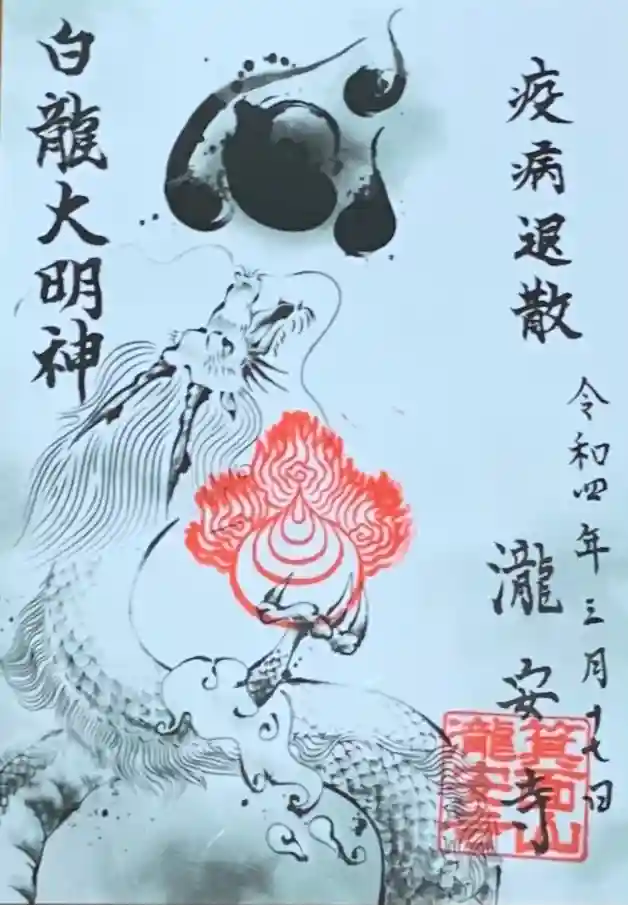 疫病退散
令和四年三月十七日
瀧安寺
箕面山
瀧安寺
白龍大明神